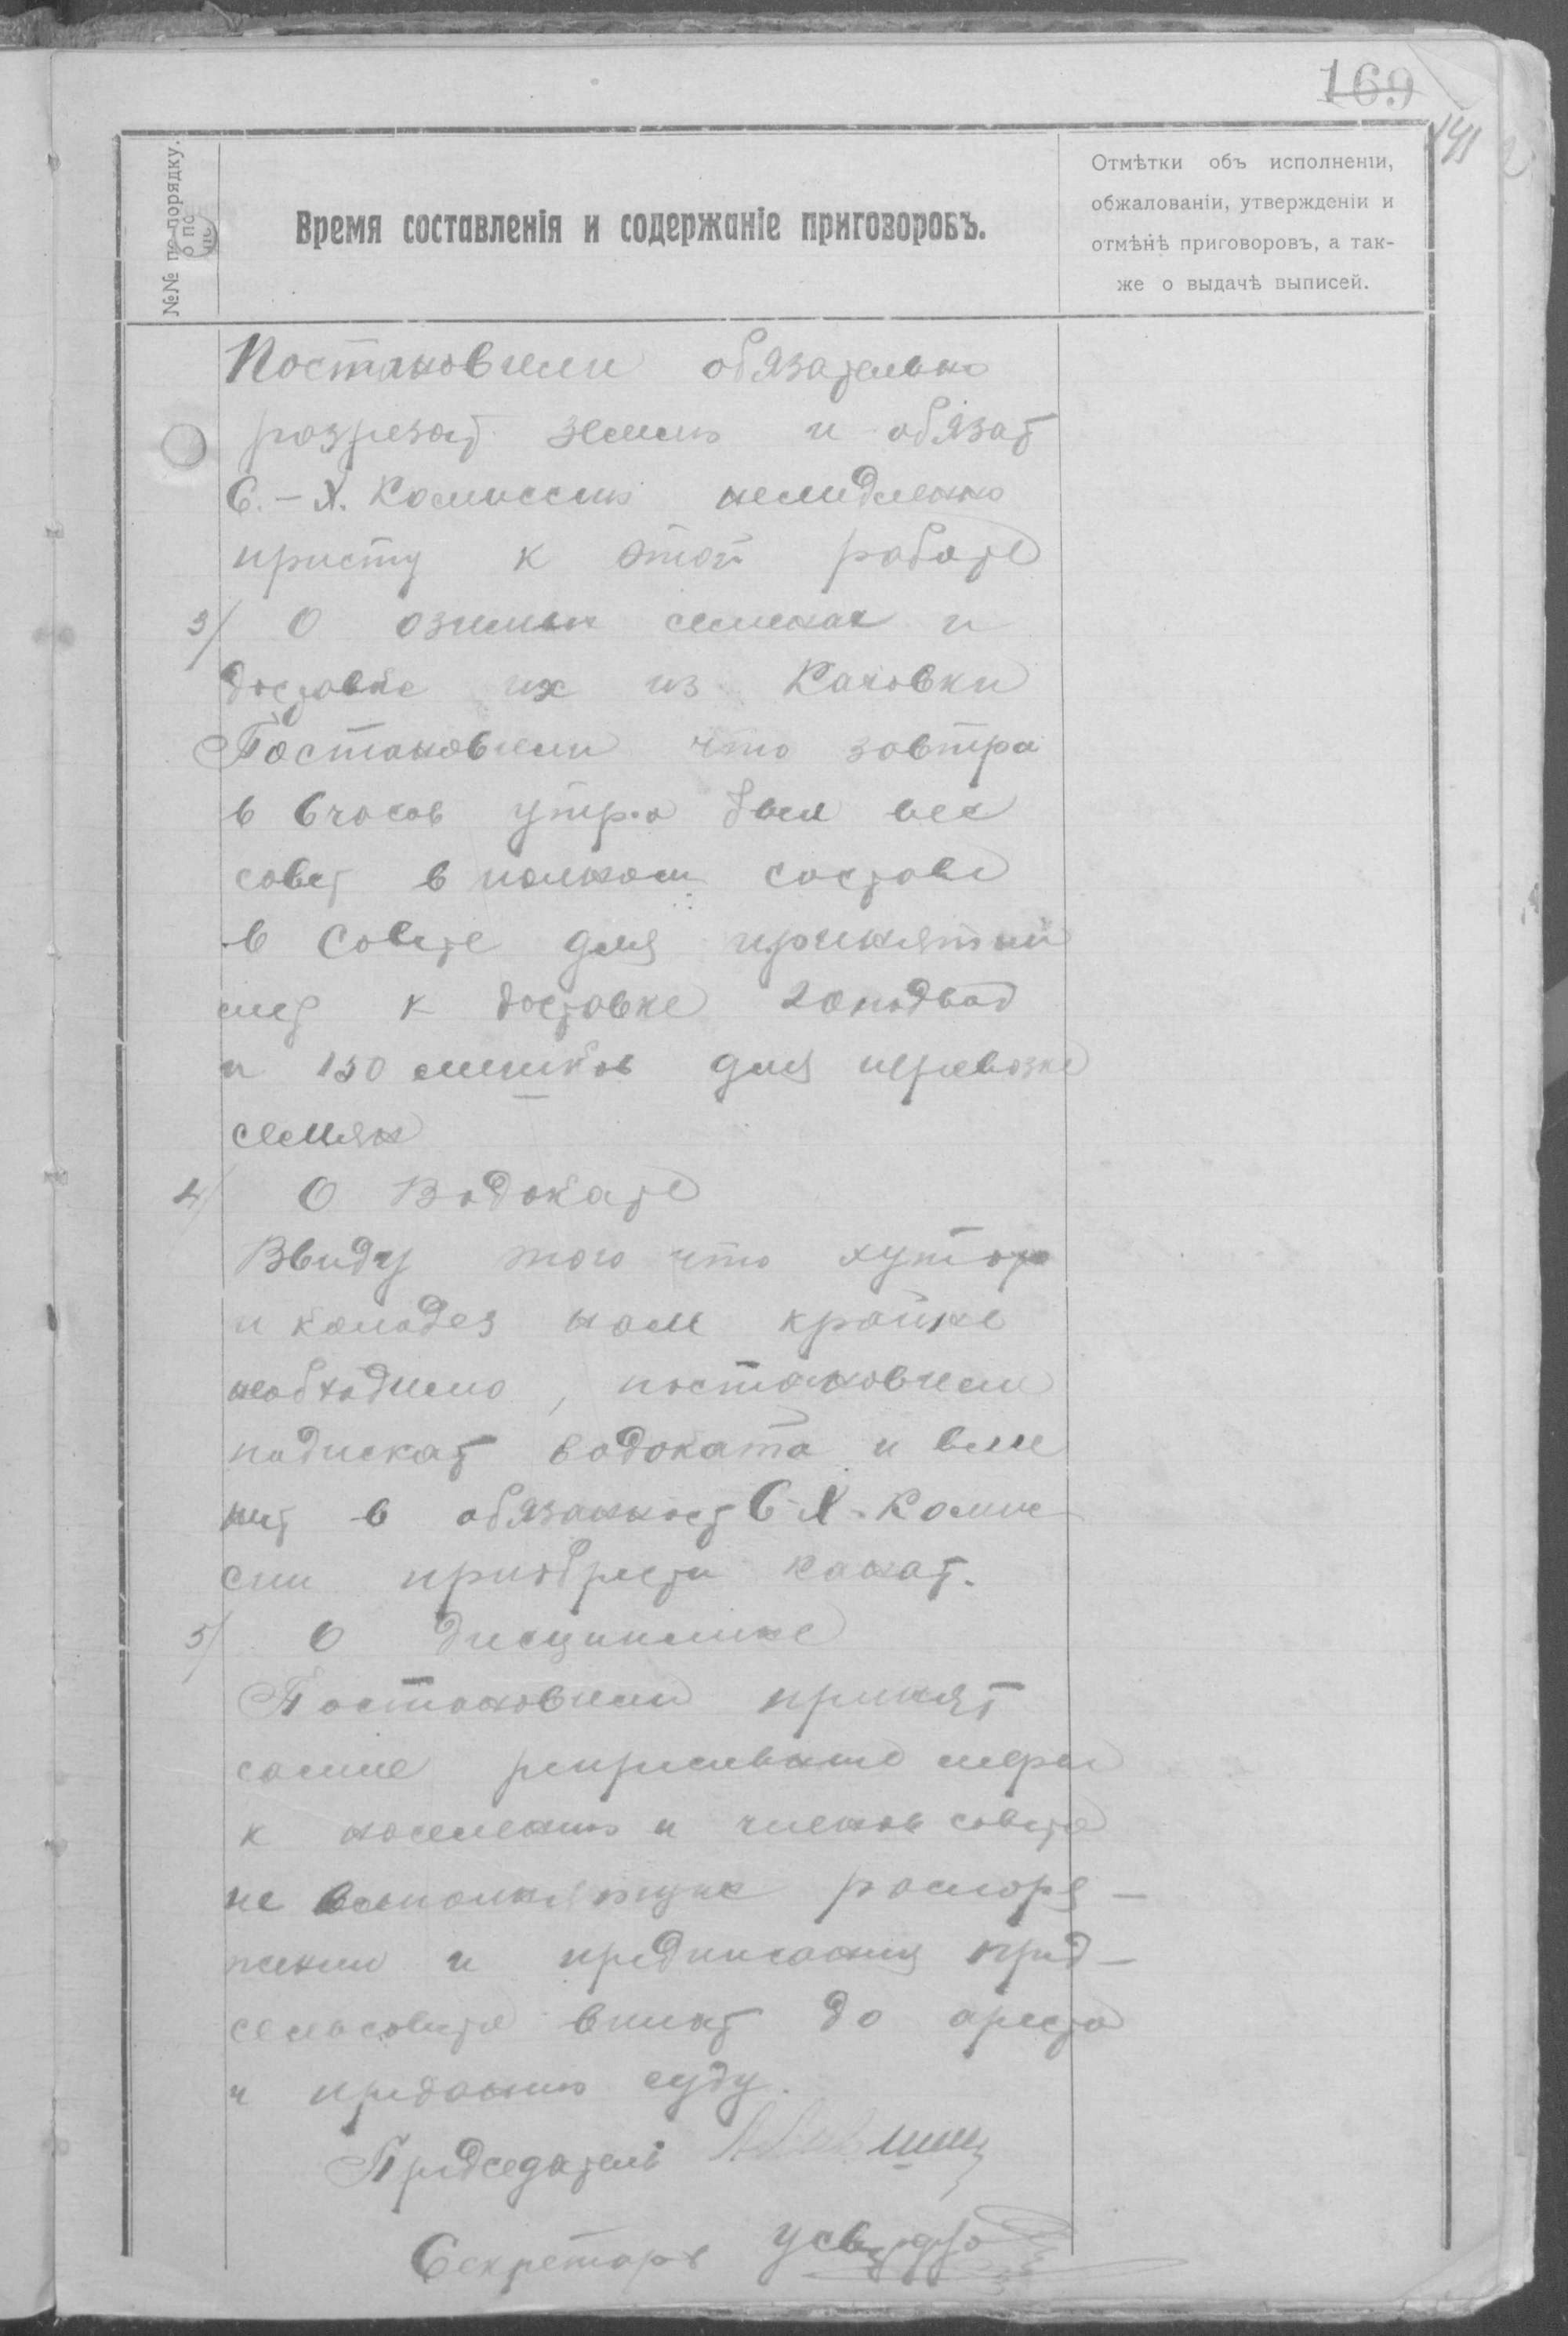 169
141
№№ по порядку.
Время составленія и содержаніе приговоровъ.
Отмѣтки объ исполненіи,
обжалованіи, утвержденіи и
отмѣнѣ приговоровъ, а так-
же о выдачѣ выписей.
Постановили обязательно
розрезат землю и обязат
С.-Х. Комиссию немидленно
присту к этой работе
3/ О озимых семенах и
доставке их из Каховки
Постановили что завтра
в 6 часов утра был вес
совет в полном составе
в Совете для принятий
мер к доставке 20 подвод
и 150 мешков для перевозке
семян
4/ О Водокате
Ввиду того что хутор
и колодез нам крайне
необходимо, постановили
подискат водоката и вме
нит в обязанност С-Х. Комис
сии приобрести канат.
5/ О дисциплине
Постановили принят
самые меры
к населению и членов совета
не распоря-
жении и предписания пред-
сельсовета вплот до ареста
и преданию суду.
Председатель
Секретарь